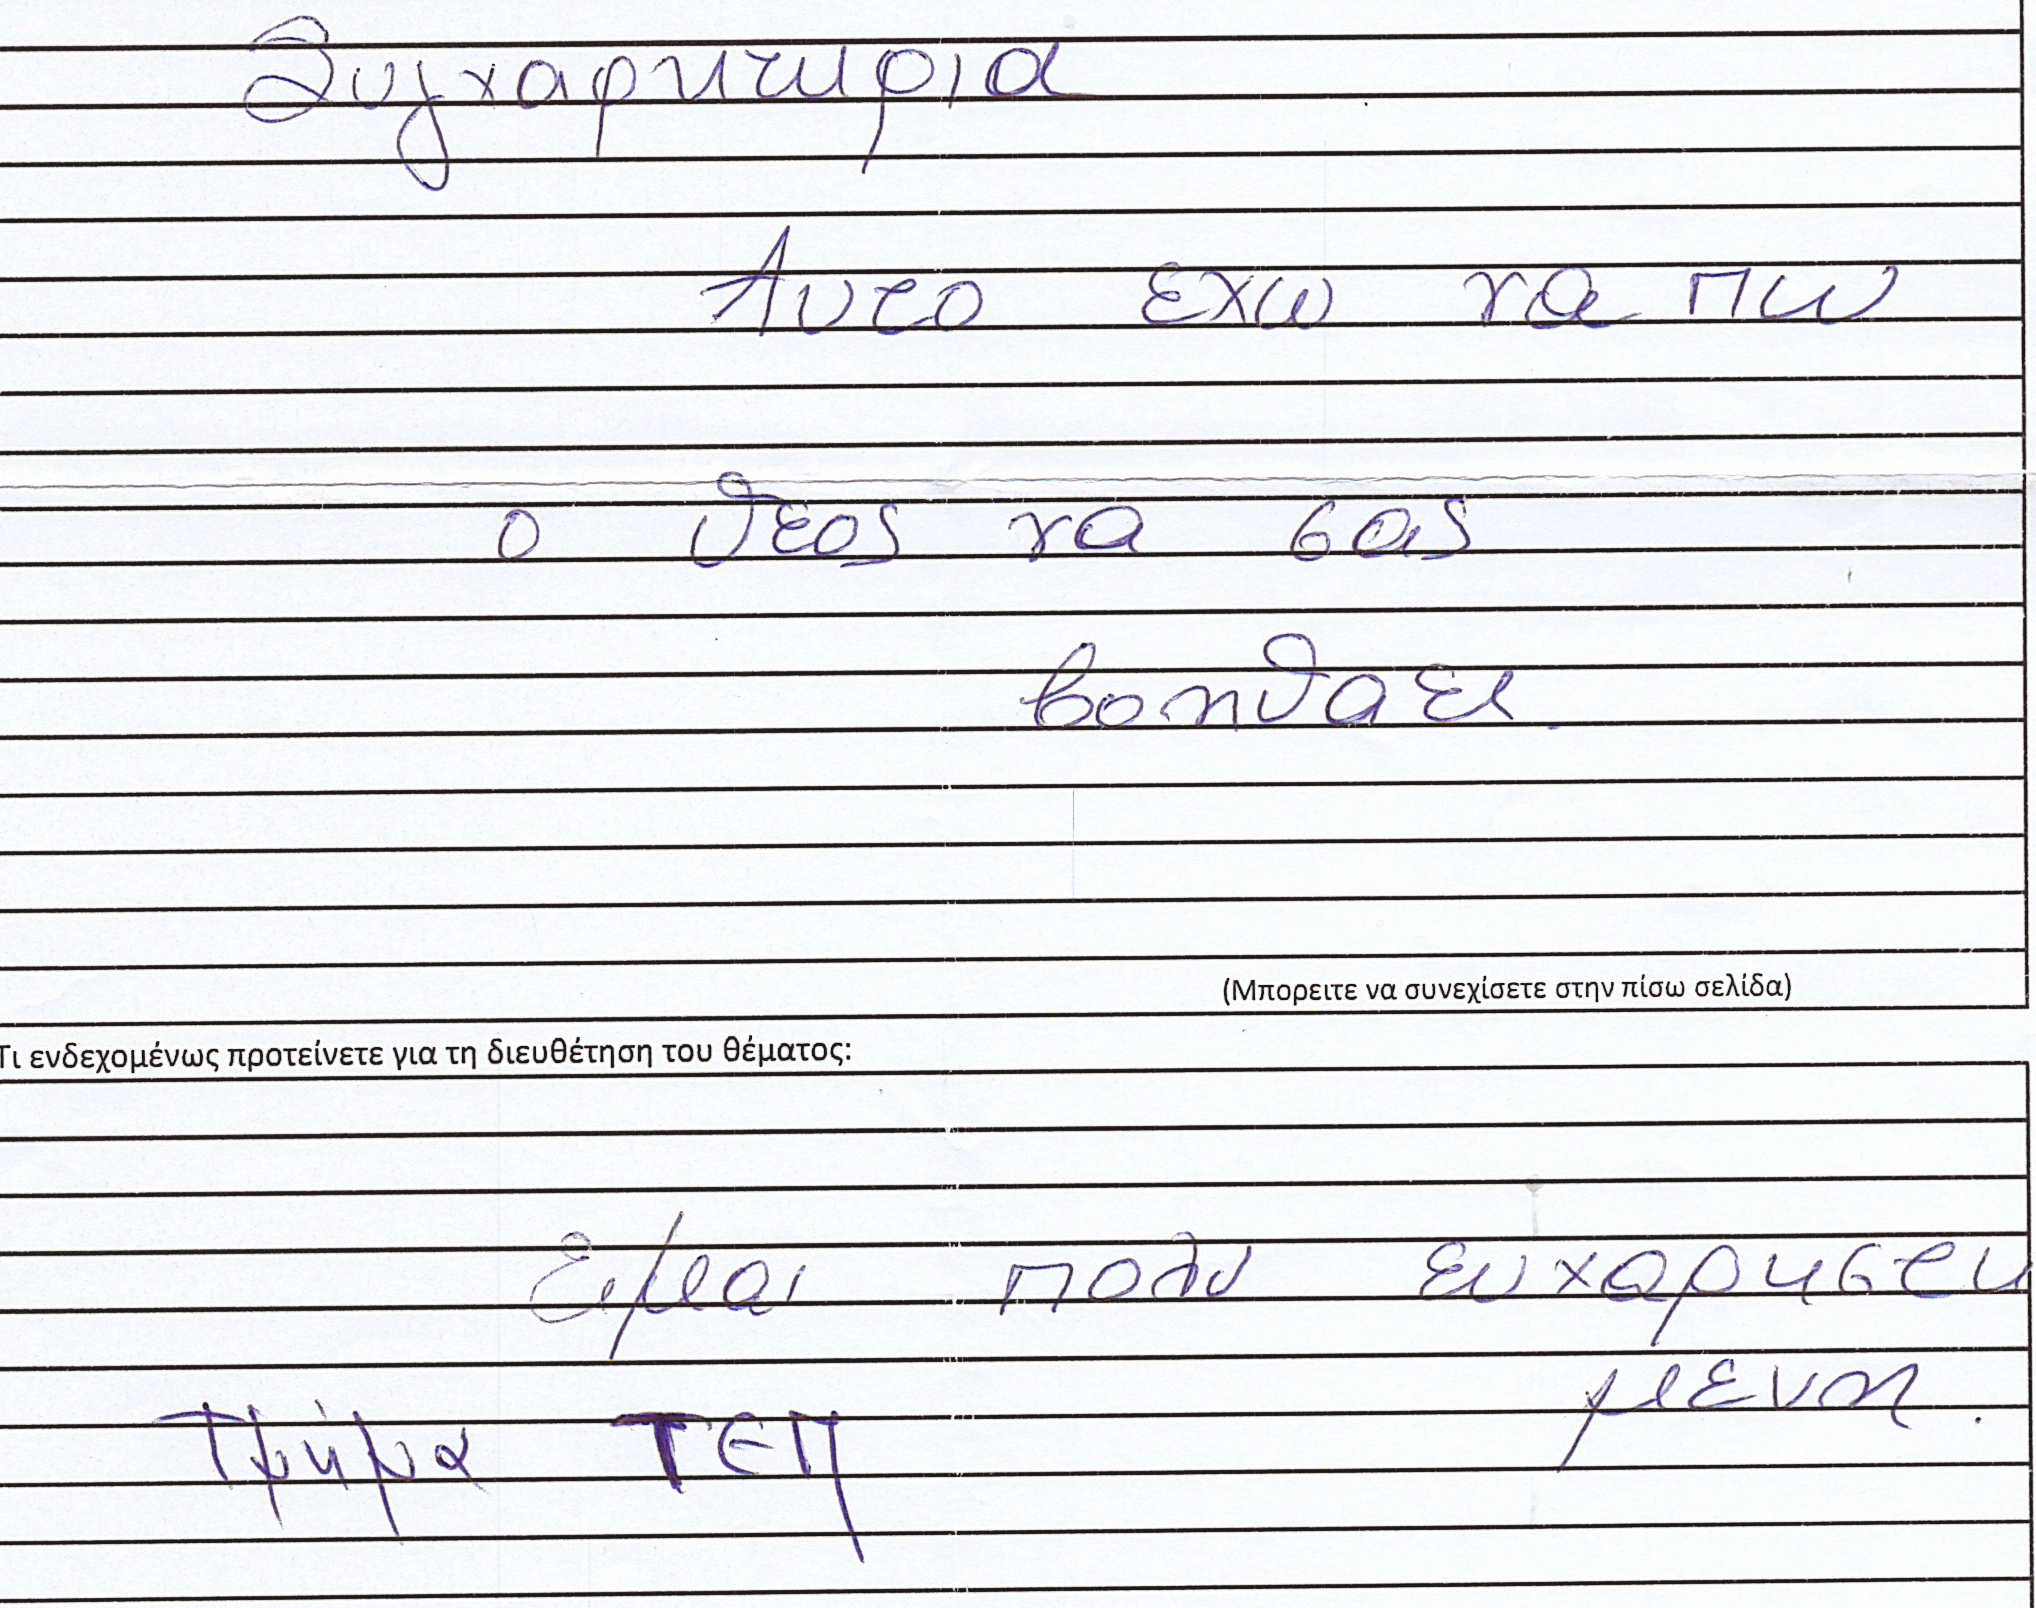 Συγχαρητηρια
Αυτο εχω να πω
ο θεος να σας
βοηθαει.
(Μπορειτε να συνεχίσετε στην πίσω σελίδα)
Τι ενδεχομένως προτείνετε για τη διευθέτηση του θέματος:
Ειμαι πολυ ευχαρηστη
μενη.
Τμήμα ΤΕΠ